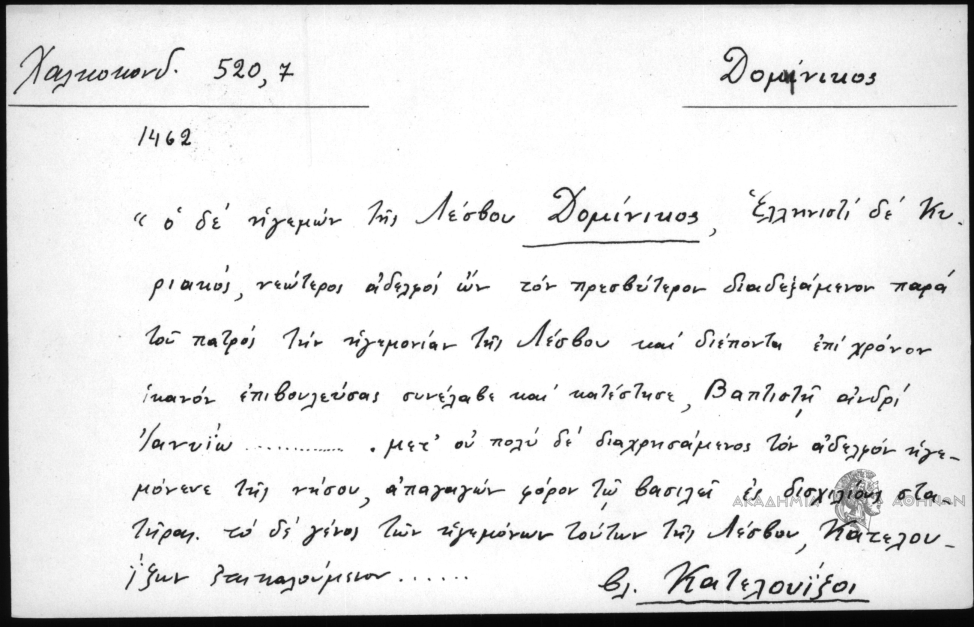 Χαλκοκονδ. 520,7
Δομίνικος
1462
"ὁ δέ ἡγεμών τῆς Λέσβου Δομίνικος, Ἑλληνιστί δέ Κυ-
ριακός, νεώτερος ἀδελφός ὤν τόν πρεσβύτερον διαδεξάμενον παρά
τοῦ πατρός τήν ἡγεμονίαν τῆς Λέσβου καί διέποντα ἐπί χρόνον
ἱκανόν ἐπιβουλεύσας συνέλαβε καί κατέστησε, Βαπτιστῇ ἀνδρί
Ἰανυΐω .............. . μετ' οὐ πολύ δέ διαχρησάμενος τόν ἀδελφόν ἡγε-
μόνευε τῆς νήσου, ἀπαγαγών φόρον τῷ βασιλεῖ ἐς δισχιλίους στα-
τῆρας. τό δέ γένος τῶν ἡγεμόνων τούτων τῆς Λέσβου, Κατελου-
ΐξων ἐπικαλούμενον ......
βλ. Κατελουΐξοι
ΑΚΑΔΗΜΙΑ ΑΘΗΝΩΝ